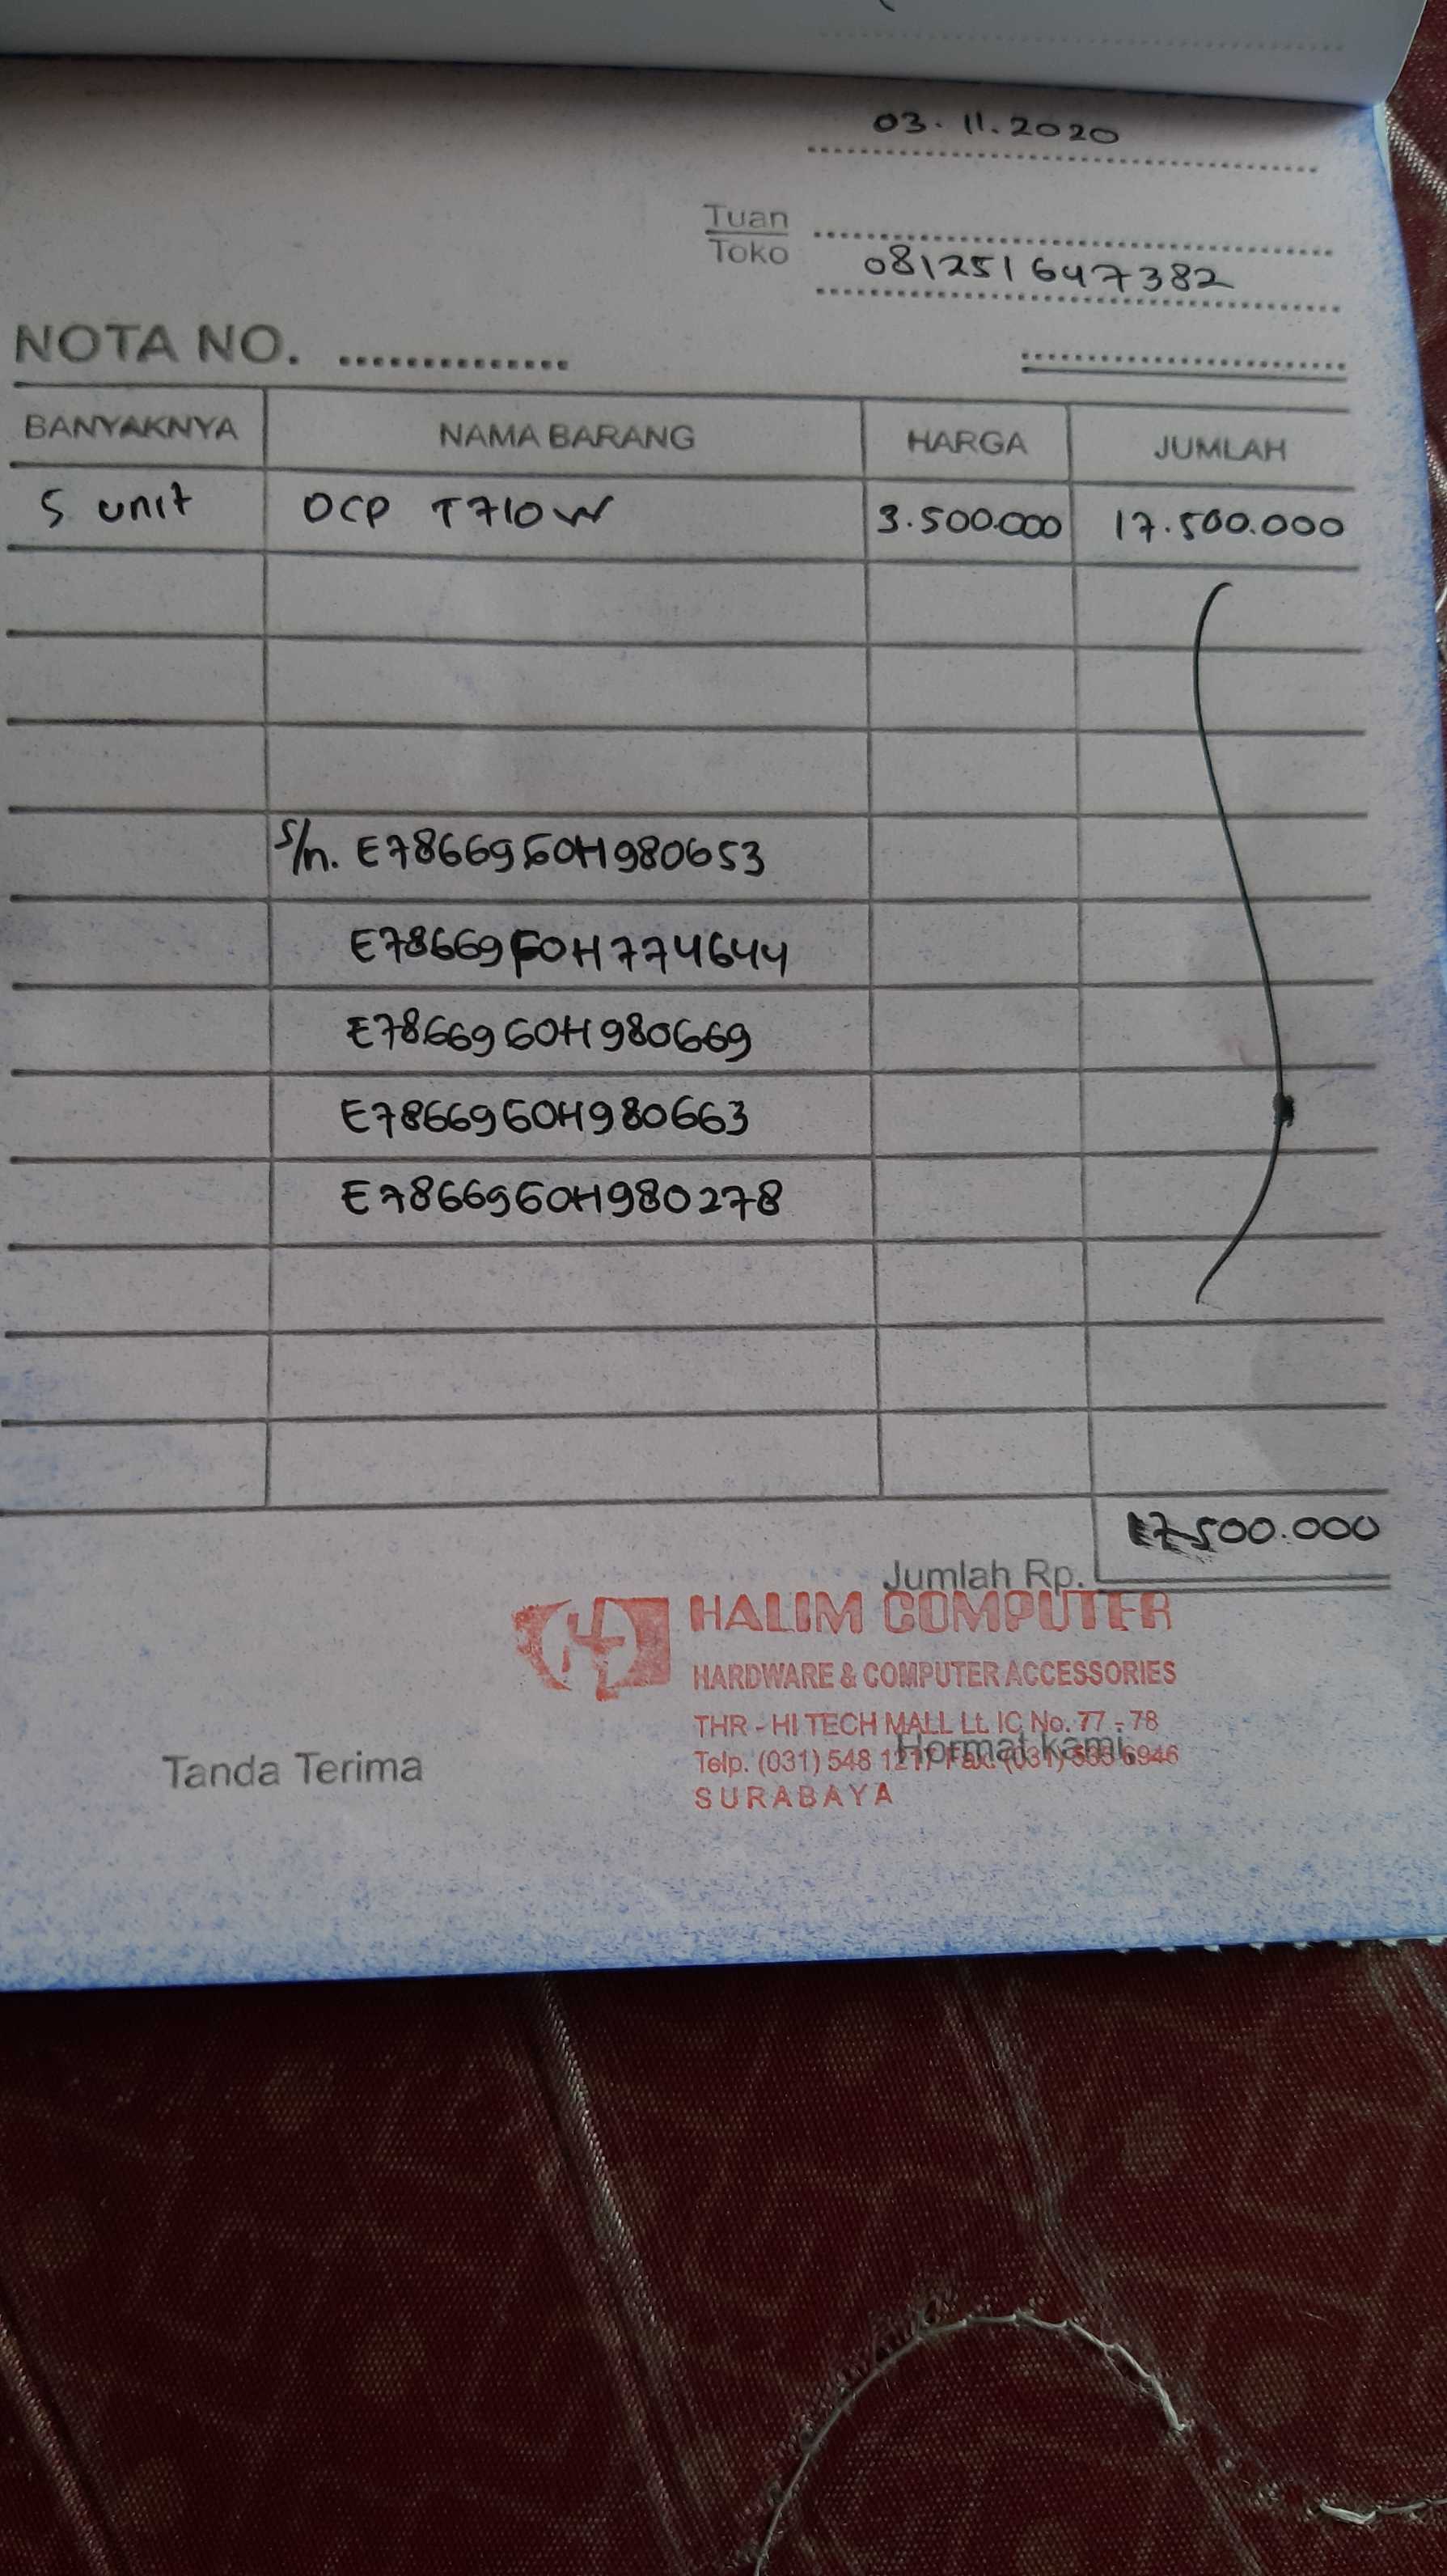 03.11.2020
Tuan
Toko
081251647382
NOTA NO. ..............
BANYAKNYA NAMA BARANG HARGA JUMLAH
5 unit DCP T710W 3.500.000 17.500.000
S/n. E78669G0H980653
E78669F0H774644
E78669G0H980669
E78669G0H980663
E78669G0H980278
17.500.000
Jumlah Rp.
HALIM COMPUTER
HARDWARE & COMPUTER ACCESSORIES
THR - HI TECH MALL Lt. IC No. 77 - 78
Telp. (031) 548 1217 Fax. (031) 535 6946
SURABAYA
Tanda Terima Hormat kami,